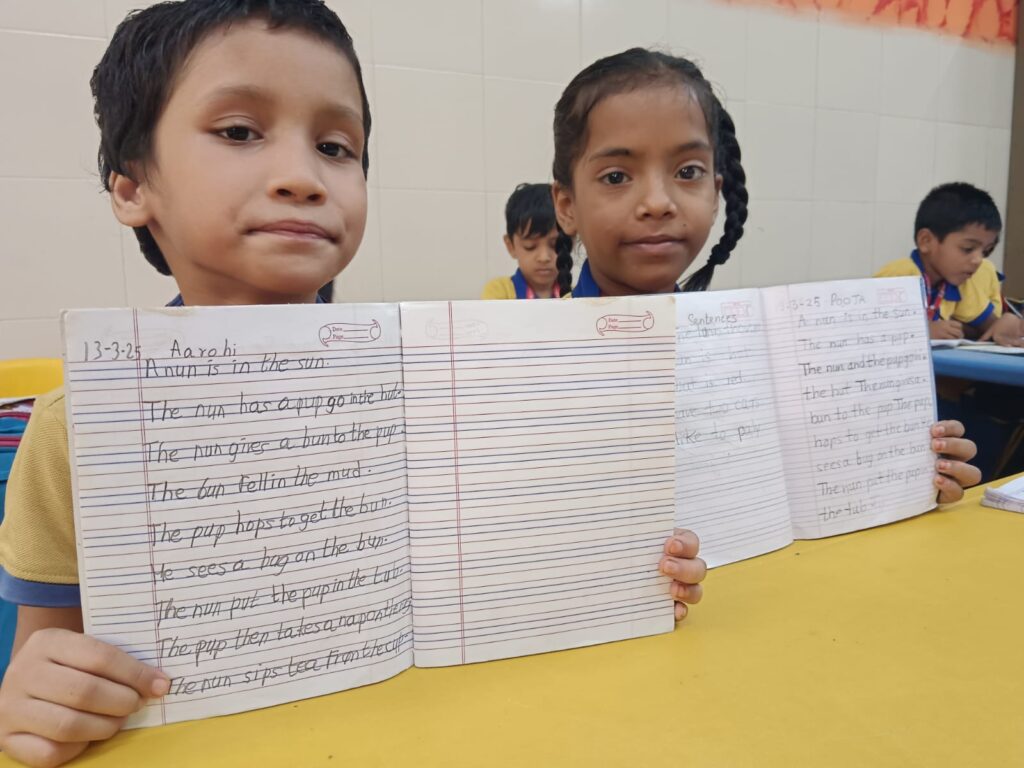 13-3-25 Aarohi
Date
Page
A nun is in the sun.
The nun has a pup go in the hut.
The nun gives a bun to the pup.
The bun fell in the mud.
The pup hops to get the bun.
He sees a bug on the bun.
The nun put the pup in the tub.
The pup then takes a nap on the
The nun sips tea from the cup
Date
Page
Sentences
is red
can
like to
3-25 POOJA
A nun is in the sun.
The nun has a pup.
The nun and the pup go in
the hut The nun gives a
bun to the pup The pup
hops to get the bun
sees a bug on the bun
The nun put the pup
the tub.